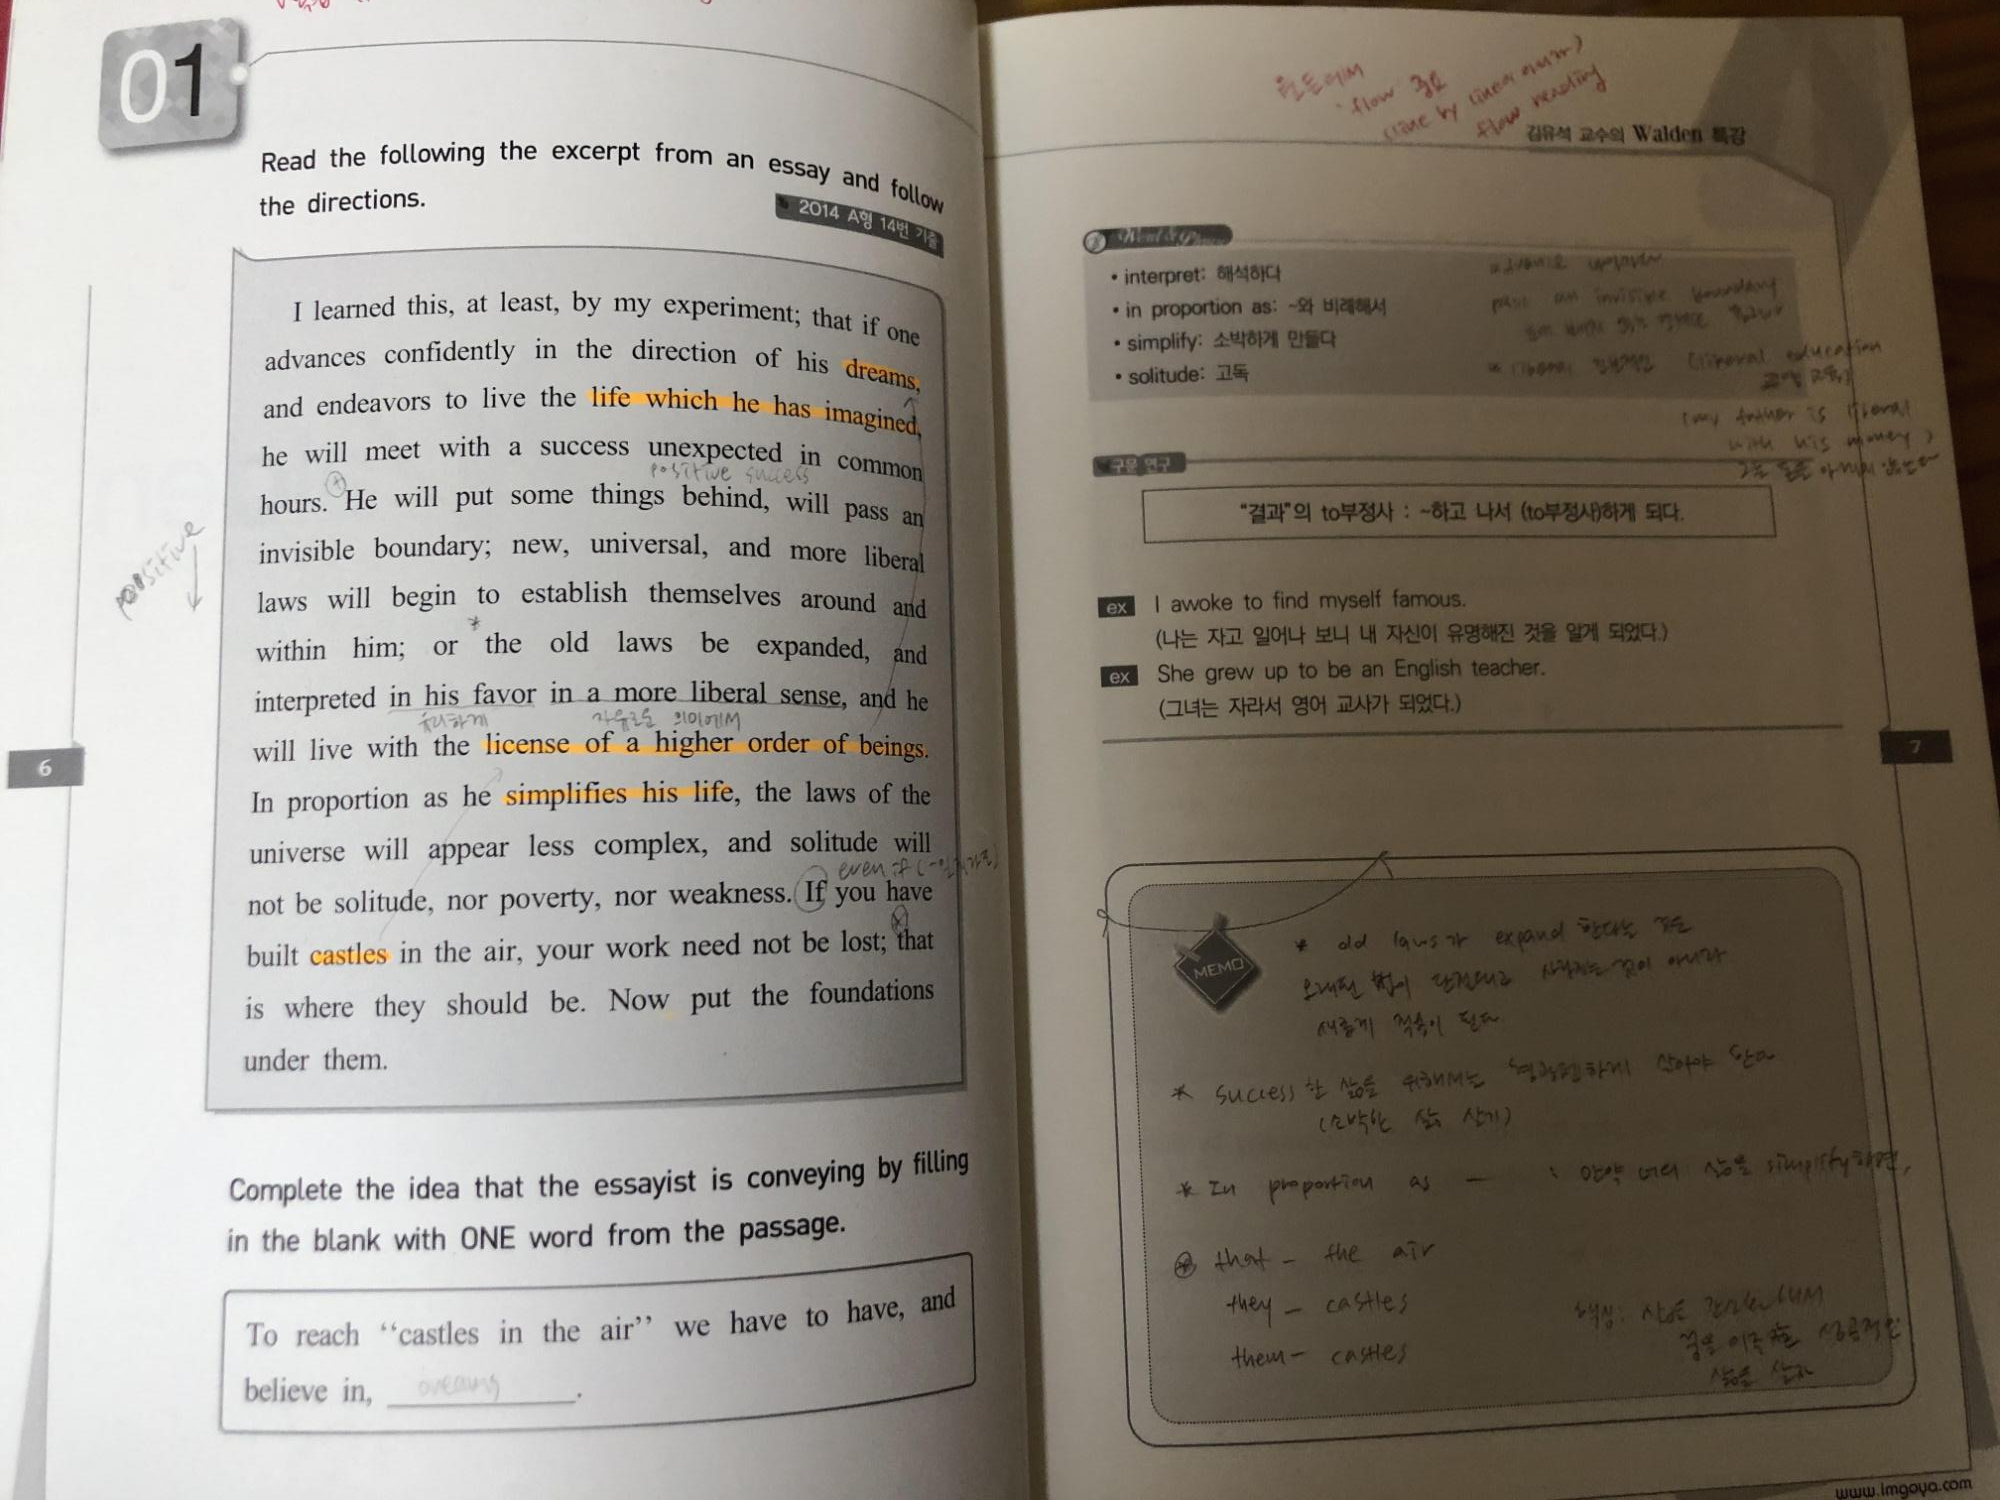 01
Read the following the excerpt from an essay and follow
the directions.
2014 A형 14번 기출
I learned this, at least, by my experiment; that if one
advances confidently in the direction of his dreams,
and endeavors to live the life which he has imagined,
he will meet with a success unexpected in common
positive success
hours. He will put some things behind, will pass an
invisible boundary; new, universal, and more liberal
positive
laws will begin to establish themselves around and
within him; or the old laws be expanded, and
interpreted in his favor in a more liberal sense, and he
유리하게 자유로운 의미에서
will live with the license of a higher order of beings.
In proportion as he simplifies his life, the laws of the
universe will appear less complex, and solitude will
even if
not be solitude, nor poverty, nor weakness. If you have
built castles in the air, your work need not be lost; that
is where they should be. Now put the foundations
under them.
Complete the idea that the essayist is conveying by filling
in the blank with ONE word from the passage.
To reach “castles in the air” we have to have, and
believe in, ____.
6
월든에서
flow 중요
line by line
flow reading
김유석 교수의 Walden 특강
Word & Phrase
• interpret: 해석하다
• in proportion as: ~와 비례해서
• simplify: 소박하게 만들다
• solitude: 고독
pass an invisible boundary
liberal (liberal education
(my father is liberal
with his money)
구문 연구
"결과"의 to부정사 : ~하고 나서 (to부정사)하게 되다.
ex I awoke to find myself famous.
(나는 자고 일어나 보니 내 자신이 유명해진 것을 알게 되었다.)
ex She grew up to be an English teacher.
(그녀는 자라서 영어 교사가 되었다.)
7
MEMO
* old laws가 expand 한다는 것은
오래된 법이 사라지는 것이 아니라
새롭게 적용이 된다
* success한 삶을 위해서는 살아야 한다
(소박한 삶 살기)
* In proportion as — : 만약 너의 삶을 simplify하면,
that - the air
they - castles
them - castles
핵심: 삶을
꿈을 성공적인
삶을 살자
www.imgoyo.com